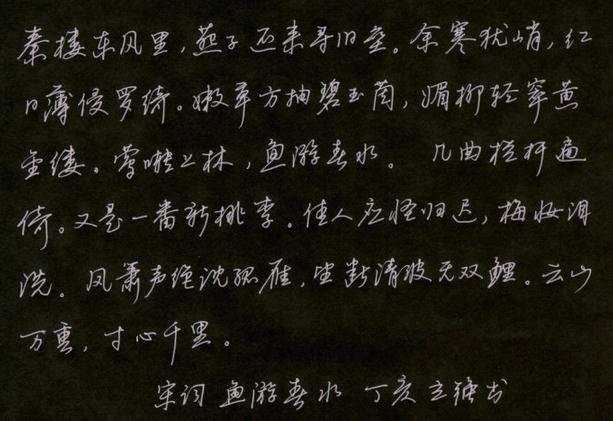 秦楼东风里，燕子还来寻旧垒。余寒犹峭，红
日薄侵罗绮。嫩草方抽碧玉茵，媚柳轻窣黄
金缕。莺啭上林，鱼游春水。 几曲栏杆遍
倚。又是一番新桃李。佳人应怪归迟，梅妆泪
洗。凤箫声绝沈孤雁，望断清波无双鲤。云山
万重，寸心千里。
宋词 鱼游春水 丁亥 立强书